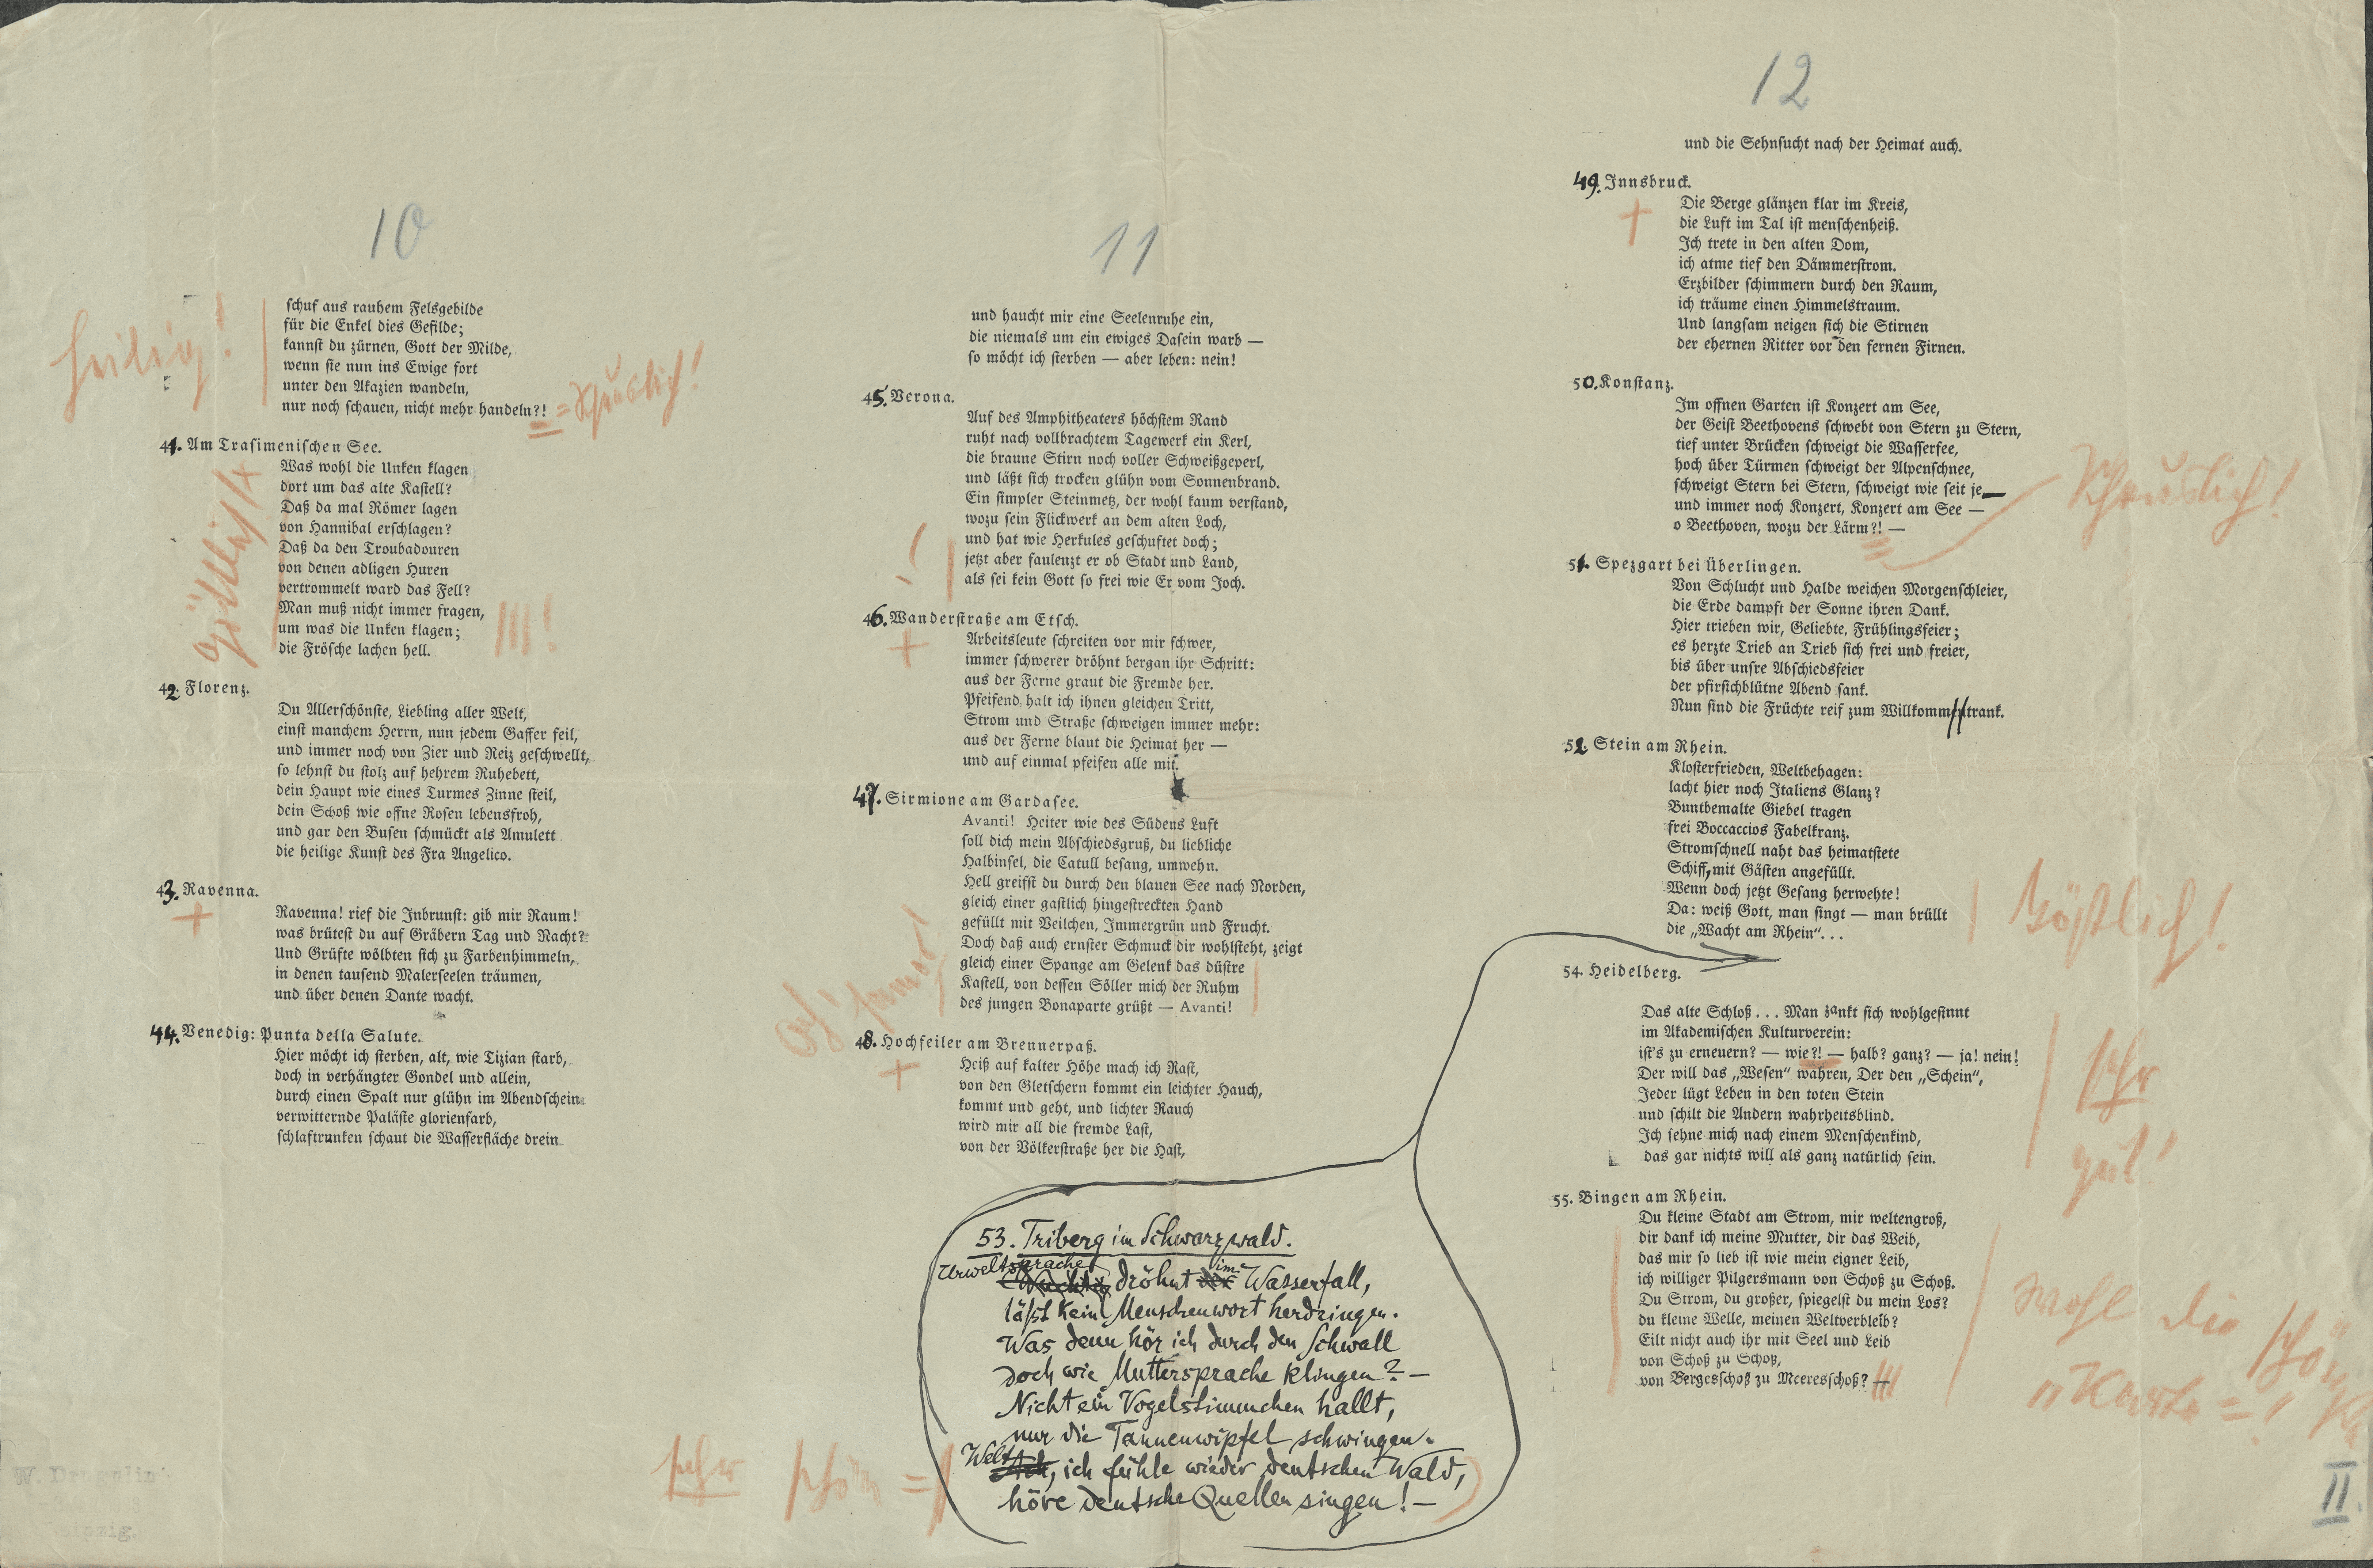 10
schuf aus rauhem Felsgebilde
für die Enkel dies Gefilde;
kannst du zürnen, Gott der Milde,
wenn sie nun ins Ewige fort
unter den Akazien wandeln,
nur noch schauen, nicht mehr handeln?!
heilig!
= scheuslich!
41. Am Trasimenischen See.
Was wohl die Unken klagen
dort um das alte Kastell?
Daß da mal Römer lagen
von Hannibal erschlagen?
Daß da den Troubadouren
von denen adligen Huren
vertrommelt ward das Fell?
Man muß nicht immer fragen,
um was die Unken klagen;
die Frösche lachen hell.
!!!!
42. Florenz.
Du Allerschönste, Liebling aller Welt,
einst manchem Herrn, nun jedem Gaffer feil,
und immer noch von Zier und Reiz geschwellt,
so lehnst du stolz auf hehrem Ruhebett,
dein Haupt wie eines Turmes Zinne steil,
dein Schoß wie offne Rosen lebensfroh,
und gar den Busen schmückt als Amulett
die heilige Kunst des Fra Angelico.
43. Ravenna.
+
Ravenna! rief die Inbrunst: gib mir Raum!
was brütest du auf Gräbern Tag und Nacht?
Und Grüfte wölbten sich zu Farbenhimmeln,
in denen tausend Malerseelen träumen,
und über denen Dante wacht.
44. Venedig: Punta della Salute.
Hier möcht ich sterben, alt, wie Tizian starb,
doch in verhängter Gondel und allein,
durch einen Spalt nur glühn im Abendschein
verwitternde Paläste glorienfarb,
schlaftrunken schaut die Wasserfläche drein
W. Drugulin
Leipzig.
11
und haucht mir eine Seelenruhe ein,
die niemals um ein ewiges Dasein warb —
so möcht ich sterben — aber leben: nein!
45. Verona.
Auf des Amphitheaters höchstem Rand
ruht nach vollbrachtem Tagewerk ein Kerl,
die braune Stirn noch voller Schweißgeperl,
und läßt sich trocken glühn vom Sonnenbrand.
Ein simpler Steinmetz, der wohl kaum verstand,
wozu sein Flickwerk an dem alten Loch,
und hat wie Herkules geschuftet doch;
jetzt aber faulenzt er ob Stadt und Land,
als sei kein Gott so frei wie Er vom Joch.
!
46. Wanderstraße am Etsch.
+
Arbeitsleute schreiten vor mir schwer,
immer schwerer dröhnt bergan ihr Schritt:
aus der Ferne graut die Fremde her.
Pfeifend halt ich ihnen gleichen Tritt,
Strom und Straße schweigen immer mehr:
aus der Ferne blaut die Heimat her —
und auf einmal pfeifen alle mit.
47. Sirmione am Gardasee.
Avanti! Heiter wie des Südens Luft
soll dich mein Abschiedsgruß, du liebliche
Halbinsel, die Catull besang, umwehn.
Hell greifst du durch den blauen See nach Norden,
gleich einer gastlich hingestreckten Hand
gefüllt mit Veilchen, Immergrün und Frucht.
Doch daß auch ernster Schmuck dir wohlsteht, zeigt
gleich einer Spange am Gelenk das düstre
Kastell, von dessen Söller mich der Ruhm
des jungen Bonaparte grüßt — Avanti!
48. Hochfeiler am Brennerpaß.
+
Heiß auf kalter Höhe mach ich Rast,
von den Gletschern kommt ein leichter Hauch,
kommt und geht, und lichter Rauch
wird mir all die fremde Last,
von der Völkerstraße her die Hast,
53. Triberg im Schwarzwald.
Urweltsprache dröhnt im Wasserfall,
läßt kein Menschenwort herdringen.
Was denn hör ich durch den Schwall
doch wie Muttersprache klingen? —
Nicht ein Vogelstimmchen hallt,
nur die Tannenwipfel schwingen.
Welt, ich fühle wieder deutschen Wald,
höre deutsche Quellen singen! —
sehr schön =
12
und die Sehnsucht nach der Heimat auch.
49. Innsbruck.
+
Die Berge glänzen klar im Kreis,
die Luft im Tal ist menschenheiß.
Ich trete in den alten Dom,
ich atme tief den Dämmerstrom.
Erzbilder schimmern durch den Raum,
ich träume einen Himmelstraum.
Und langsam neigen sich die Stirnen
der ehernen Ritter vor den fernen Firnen.
50. Konstanz.
Im offnen Garten ist Konzert am See,
der Geist Beethovens schwebt von Stern zu Stern,
tief unter Brücken schweigt die Wasserfee,
hoch über Türmen schweigt der Alpenschnee,
schweigt Stern bei Stern, schweigt wie seit je —
und immer noch Konzert, Konzert am See —
o Beethoven, wozu der Lärm?! —
Scheuslich!
51. Spezgart bei Überlingen.
Von Schlucht und Halde weichen Morgenschleier,
die Erde dampft der Sonne ihren Dank.
Hier trieben wir, Geliebte, Frühlingsfeier;
es herzte Trieb an Trieb sich frei und freier,
bis über unsre Abschiedsfeier
der pfirsichblütne Abend sank.
Nun sind die Früchte reif zum Willkommentrank.
52. Stein am Rhein.
Klosterfrieden, Weltbehagen:
lacht hier noch Italiens Glanz?
Buntbemalte Giebel tragen
frei Boccaccios Fabelkranz.
Stromschnell naht das heimatstete
Schiff, mit Gästen angefüllt.
Wenn doch jetzt Gesang herwehte!
Da: weiß Gott, man singt — man brüllt
die „Wacht am Rhein“...
köstlich!
54. Heidelberg.
Das alte Schloß... Man zankt sich wohlgesinnt
im Akademischen Kulturverein:
ist's zu erneuern? — wie?! — halb? ganz? — ja! nein!
Der will das „Wesen“ wahren, Der den „Schein“,
Jeder lügt Leben in den toten Stein
und schilt die Andern wahrheitsblind.
Ich sehne mich nach einem Menschenkind,
das gar nichts will als ganz natürlich sein.
sehr
gut!
55. Bingen am Rhein.
Du kleine Stadt am Strom, mir weltengroß,
dir dank ich meine Mutter, dir das Weib,
das mir so lieb ist wie mein eigner Leib,
ich williger Pilgersmann von Schoß zu Schoß.
Du Strom, du großer, spiegelst du mein Los?
du kleine Welle, meinen Weltverbleib?
Eilt nicht auch ihr mit Seel und Leib
von Schoß zu Schoß,
von Bergesschoß zu Meeresschoß? —
wohl die
"Karte = !
II.